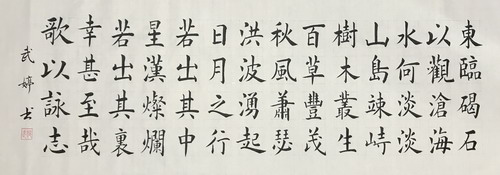 東臨碣石
以觀滄海
水何淡淡
山島竦峙
樹木叢生
百草豐茂
秋風蕭瑟
洪波湧起
日月之行
若出其中
星漢燦爛
若出其裏
幸甚至哉
歌以詠志
武婷书